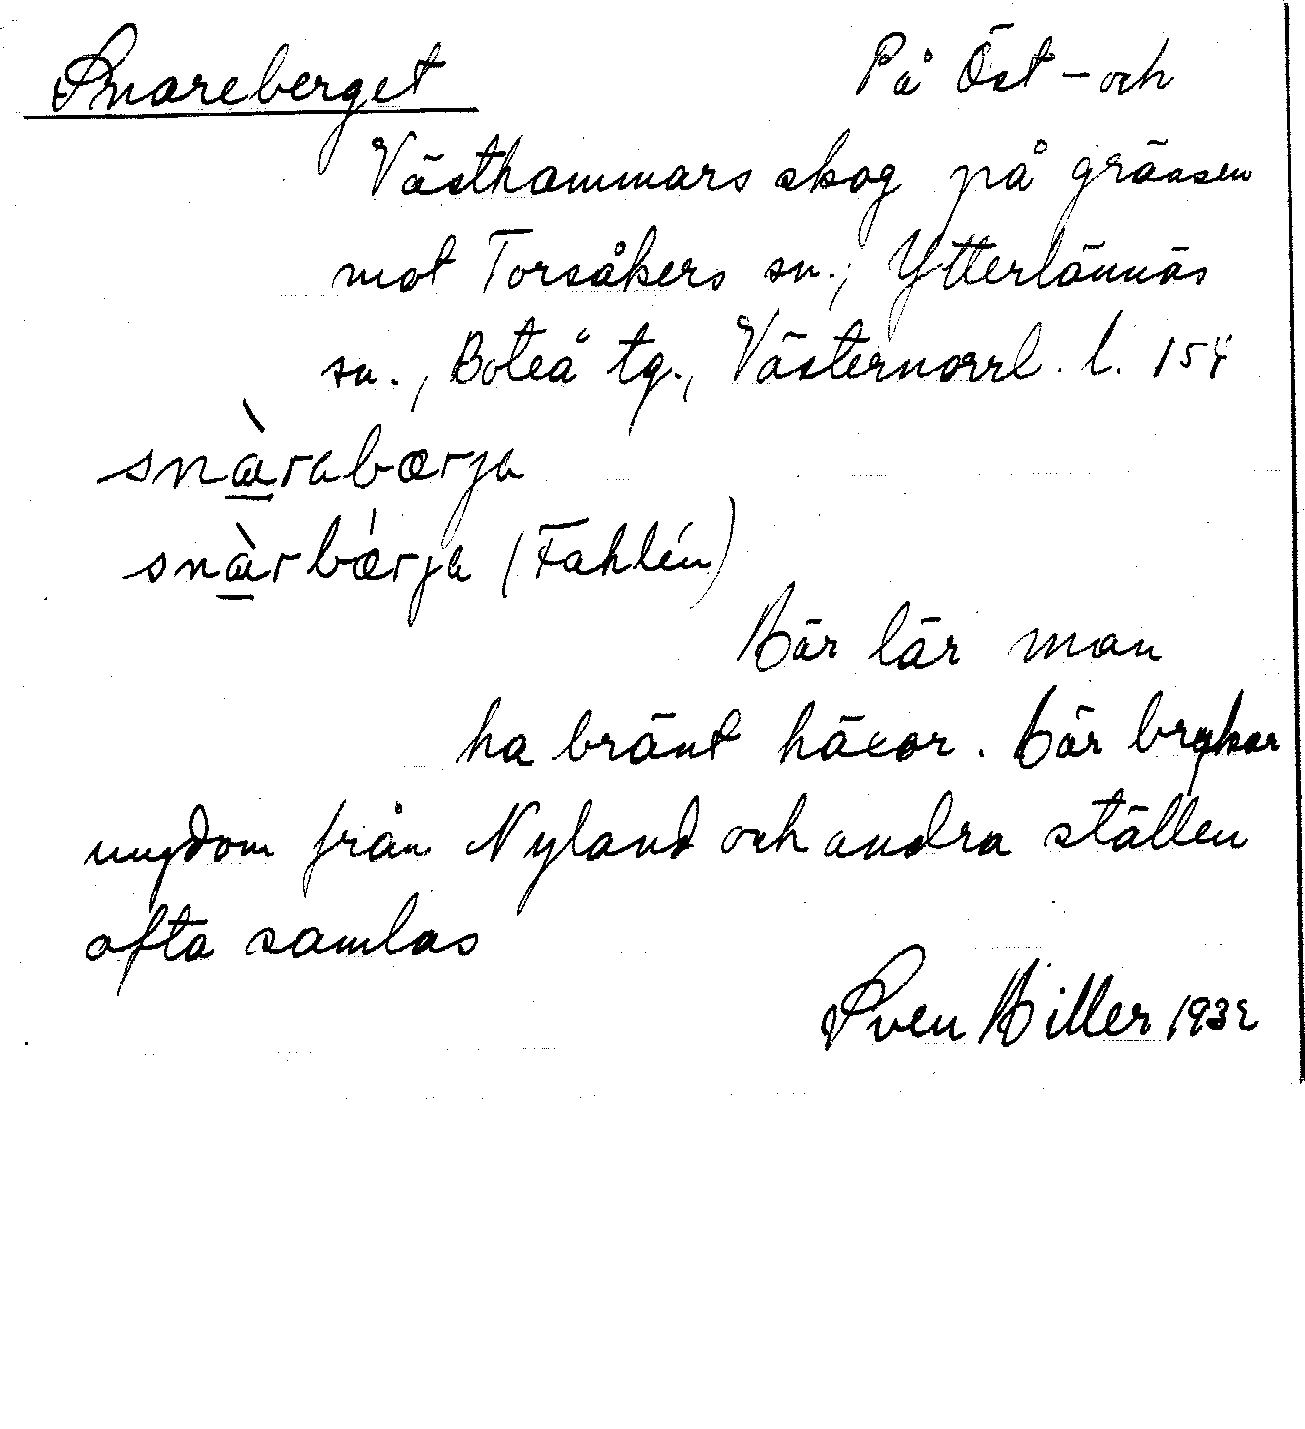 Snareberget På Öst- och
Västhammars skog på gränsen
mot Torsåkers sn., Ytterlännäs
sn., Boteå tg., Västernorrl. l. 154
snàrabærja
snàrbǽrja (Fahlén)
Här lär man
ha bränt häxor. Här brukar
ungdom från Nyland och andra ställen
ofta samlas
Sven Hiller 1932